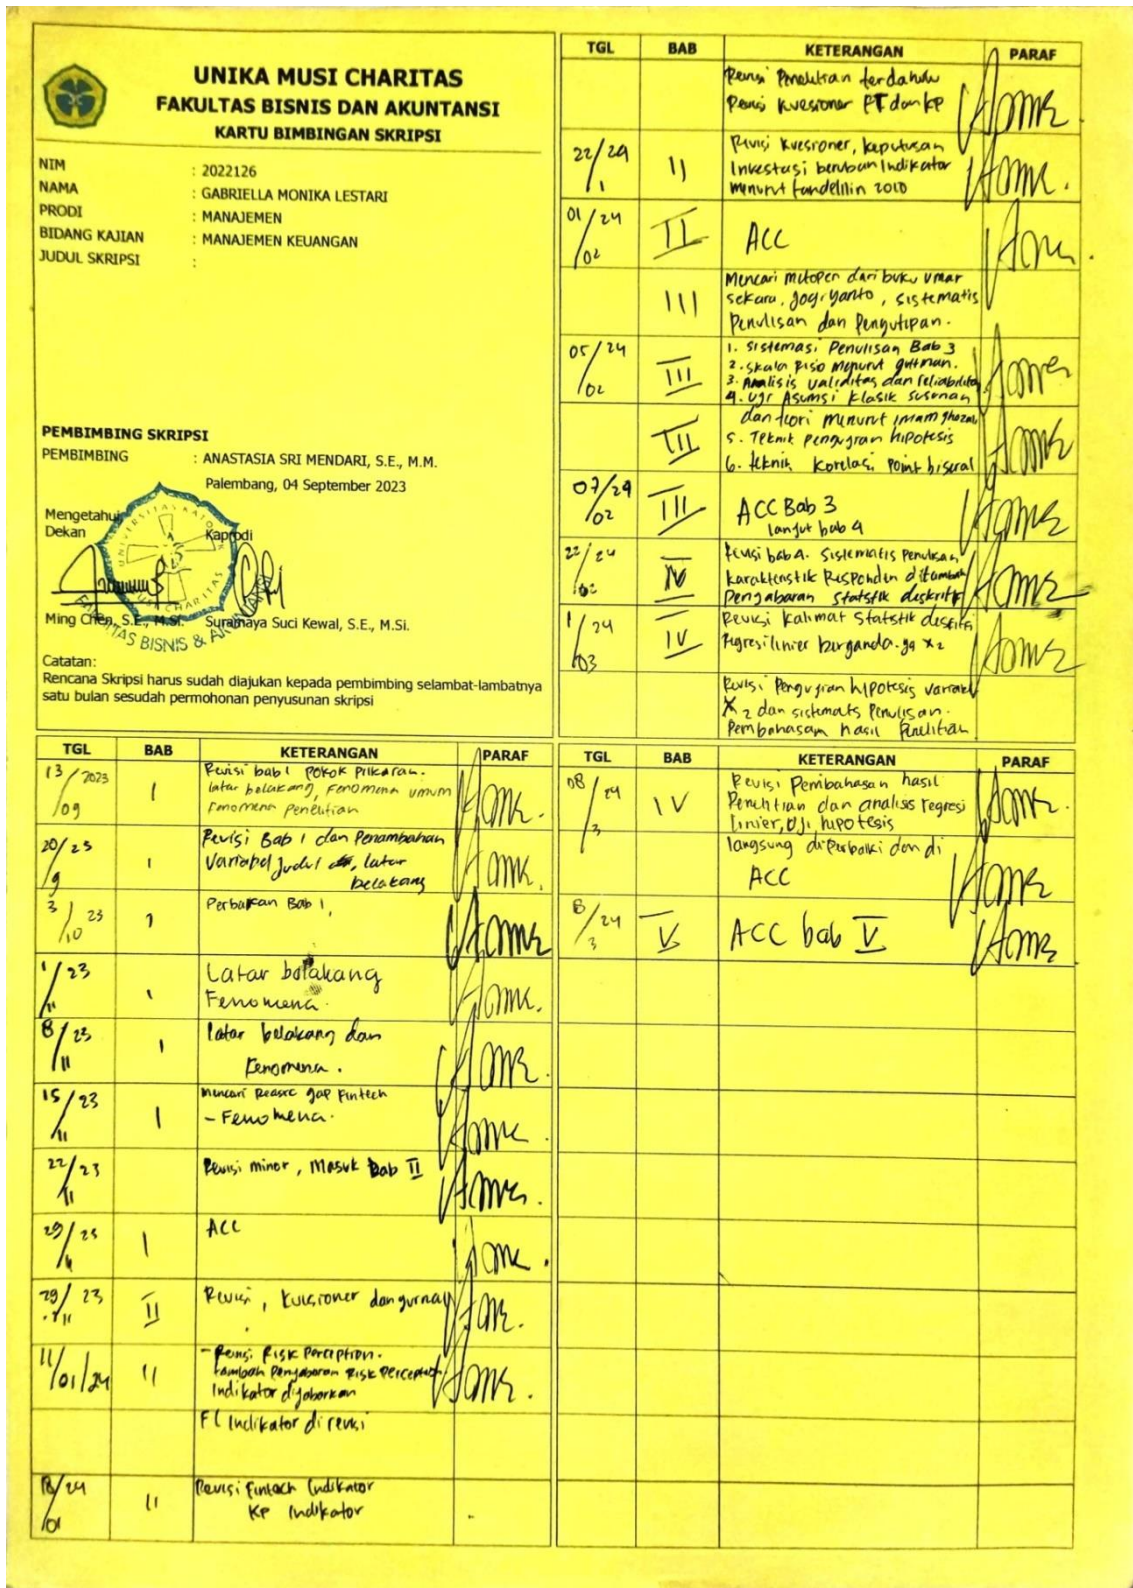 UNIKA MUSI CHARITAS
FAKULTAS BISNIS DAN AKUNTANSI
KARTU BIMBINGAN SKRIPSI
NIM : 2022126
NAMA : GABRIELLA MONIKA LESTARI
PRODI : MANAJEMEN
BIDANG KAJIAN : MANAJEMEN KEUANGAN
JUDUL SKRIPSI :
PEMBIMBING SKRIPSI
PEMBIMBING : ANASTASIA SRI MENDARI, S.E., M.M.
Palembang, 04 September 2023
Mengetahui
Dekan Kaprodi
Ming Chen, S.E., M.Si. Suramaya Suci Kewal, S.E., M.Si.
FAKULTAS BISNIS & AKUNTANSI
Catatan:
Rencana Skripsi harus sudah diajukan kepada pembimbing selambat-lambatnya
satu bulan sesudah permohonan penyusunan skripsi
TGL BAB KETERANGAN PARAF
13/2023
/09 1 Revisi bab 1 pokok pikaran.
latar belakang, Fenomena umum
Fenomena Penelitian
20/23
/9 1 Revisi Bab 1 dan Penambahan
Variabel Judul, latar
belakang
3/23
/10 1 Perbaikan Bab 1,
1/23
/11 1 Latar belakang
Fenomena.
8/23
/11 1 latar belakang dan
Fenomena.
15/23
/11 1 Mencari gap Fintech
- Fenomena.
22/23
/11 Revisi minor, Masuk bab II
29/23
1 ACC
29/23
/11 II Revisi, kuisioner dan
11/01/24 11 - Revisi Risk Perception.
tambah Penjabaran Risk Perception
Indikator dijabarkan
FL Indikator di revisi
18/24
/01 11 Revisi Fintech Indikator
KP Indikator
TGL BAB KETERANGAN PARAF
Revisi Penelitian terdahulu
Revisi kuesioner FT dan KP
22/24
/1 11 Revisi Kuesioner, keputusan
Investasi berubah Indikator
menurut Tandelilin 2010
01/24
/02 II ACC
III Mencari metopen dari buku umar
sekaran, jogiyanto, sistematis
Penulisan dan Pengutipan.
05/24
/02 III 1. Sistemasi Penulisan Bab 3
2. skala menurut guttman.
3. Analisis validitas dan reliabilitas
4. Uji Asumsi klasik susunan
III dan teori menurut imam ghozali
5. Teknik pengujian hipotesis
6. teknik korelasi point biseral
07/24
/02 III ACC Bab 3
lanjut bab 4
22/24
/02 IV Revisi bab 4. Sistematis Penulisan
Karakteristik Responden ditambah
Pengabaran statstik
1/24
/03 IV Revisi Kalimat Statstik
Regresi linier berganda. yg x2
Revisi Pengujian hipotesis variabel
X2 dan sistemats Penulisan.
Pembahasan hasil Penelitian
TGL BAB KETERANGAN PARAF
08/24
/3 IV Revisi Pembahasan hasil
Penelitian dan analisis regresi
linier, Uji hipotesis
langsung diperbaiki dan di
ACC
/24
/3 V ACC bab V